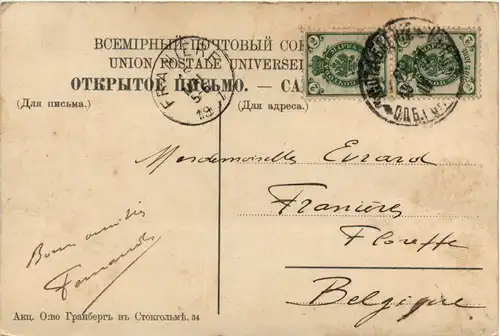 ВСЕМІРНЫЙ ПОЧТОВЫЙ СОЮ
UNION POSTALE UNIVERSELLE
ОТКРЫТОЕ ПИСЬМО. — CA
(Для письма.)
(Для адреса.)
МАРКА
FRANIÈRE
Mesdemoiselles Evrard
Franières
Floreffe
Belgique
Bonne amitiés
Fernande
Акц. О:во Гранбергъ въ Стокгольмѣ. 34